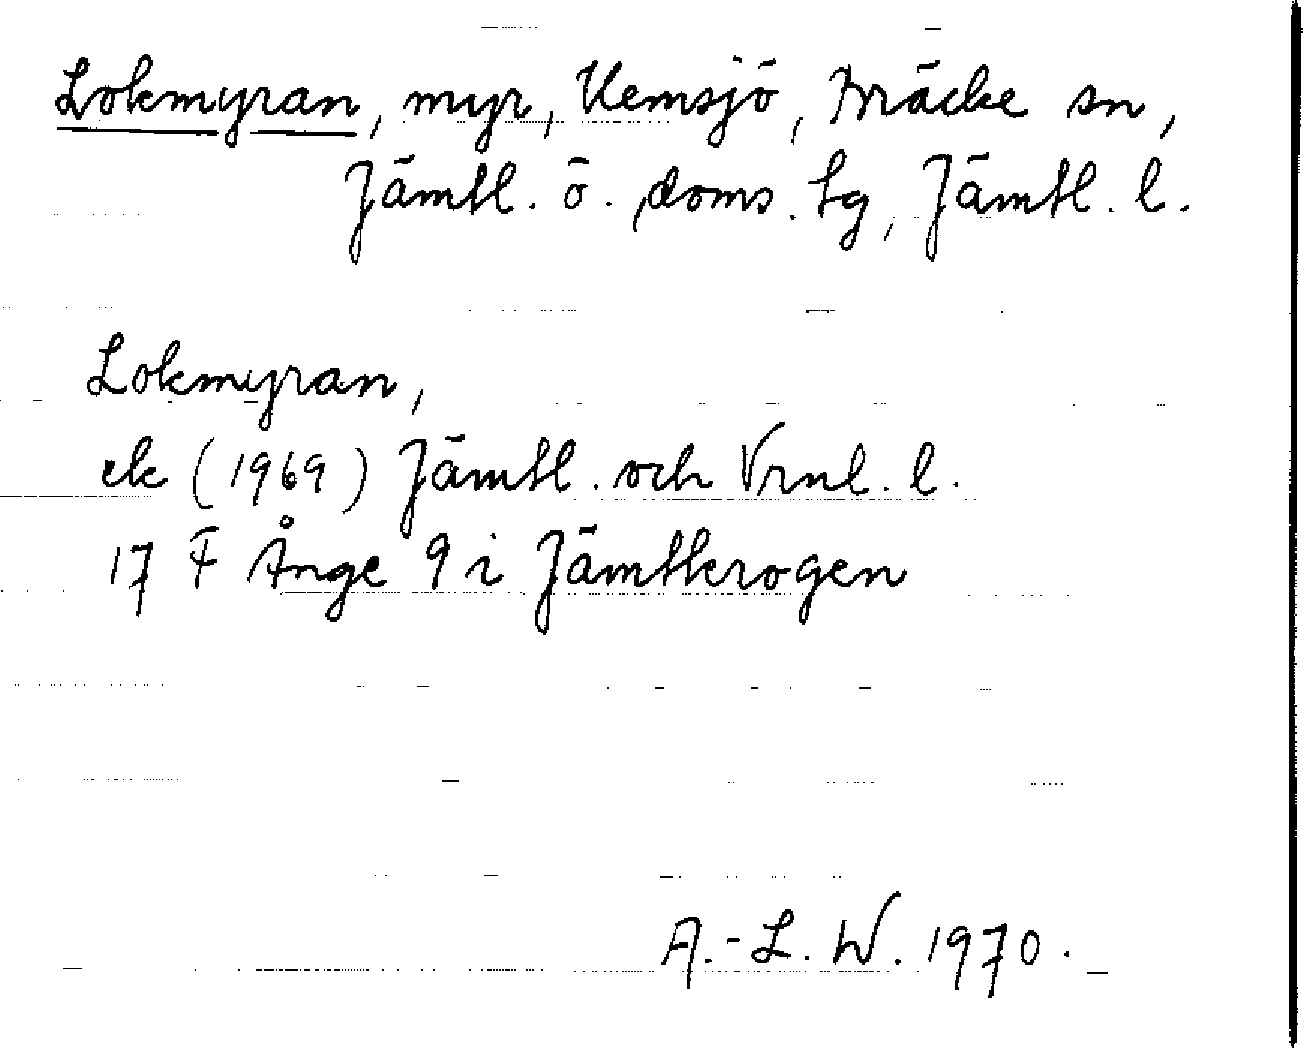 Lokmyran, myr, Kemsjö, Bräcke sn,
Jämtl. ö. doms. tg, Jämtl. l.
Lokmyran,
ek (1969) Jämtl. och Vrnl. l.
17 F Ånge 9 i Jämtkrogen
A.-L. W. 1970.